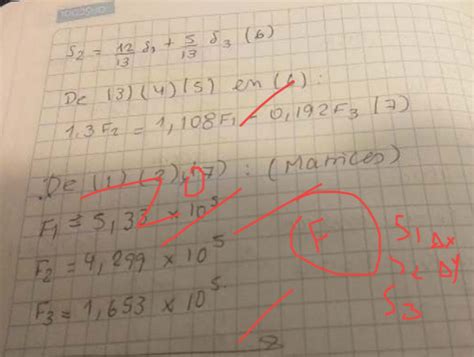 δ₂ = 12/13 δ₁ + 5/13 δ₃ (6)
De (3) (4) (5) en (6) :
1,3F₂ = 1,108F₁ - 0,192F₃ (7)
De (1) (2) (7) : (Matrices)
F₁ = 5,33 × 10⁵
F₂ = 4,299 × 10⁵
F₃ = 1,653 × 10⁵
F
S₁ Δx
S₂ Δy
S₃